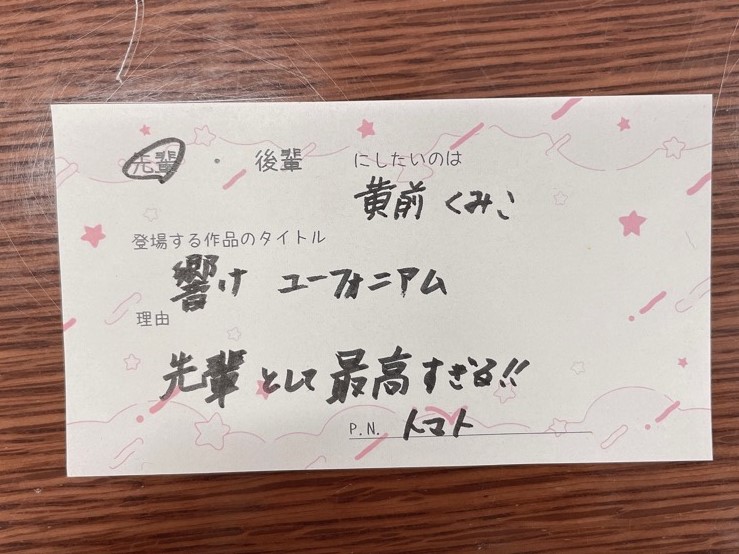 先輩 ・ 後輩 にしたいのは
黄前 くみこ
登場する作品のタイトル
響け ユーフォニアム
理由
先輩として最高すぎる!!
P.N. トマト